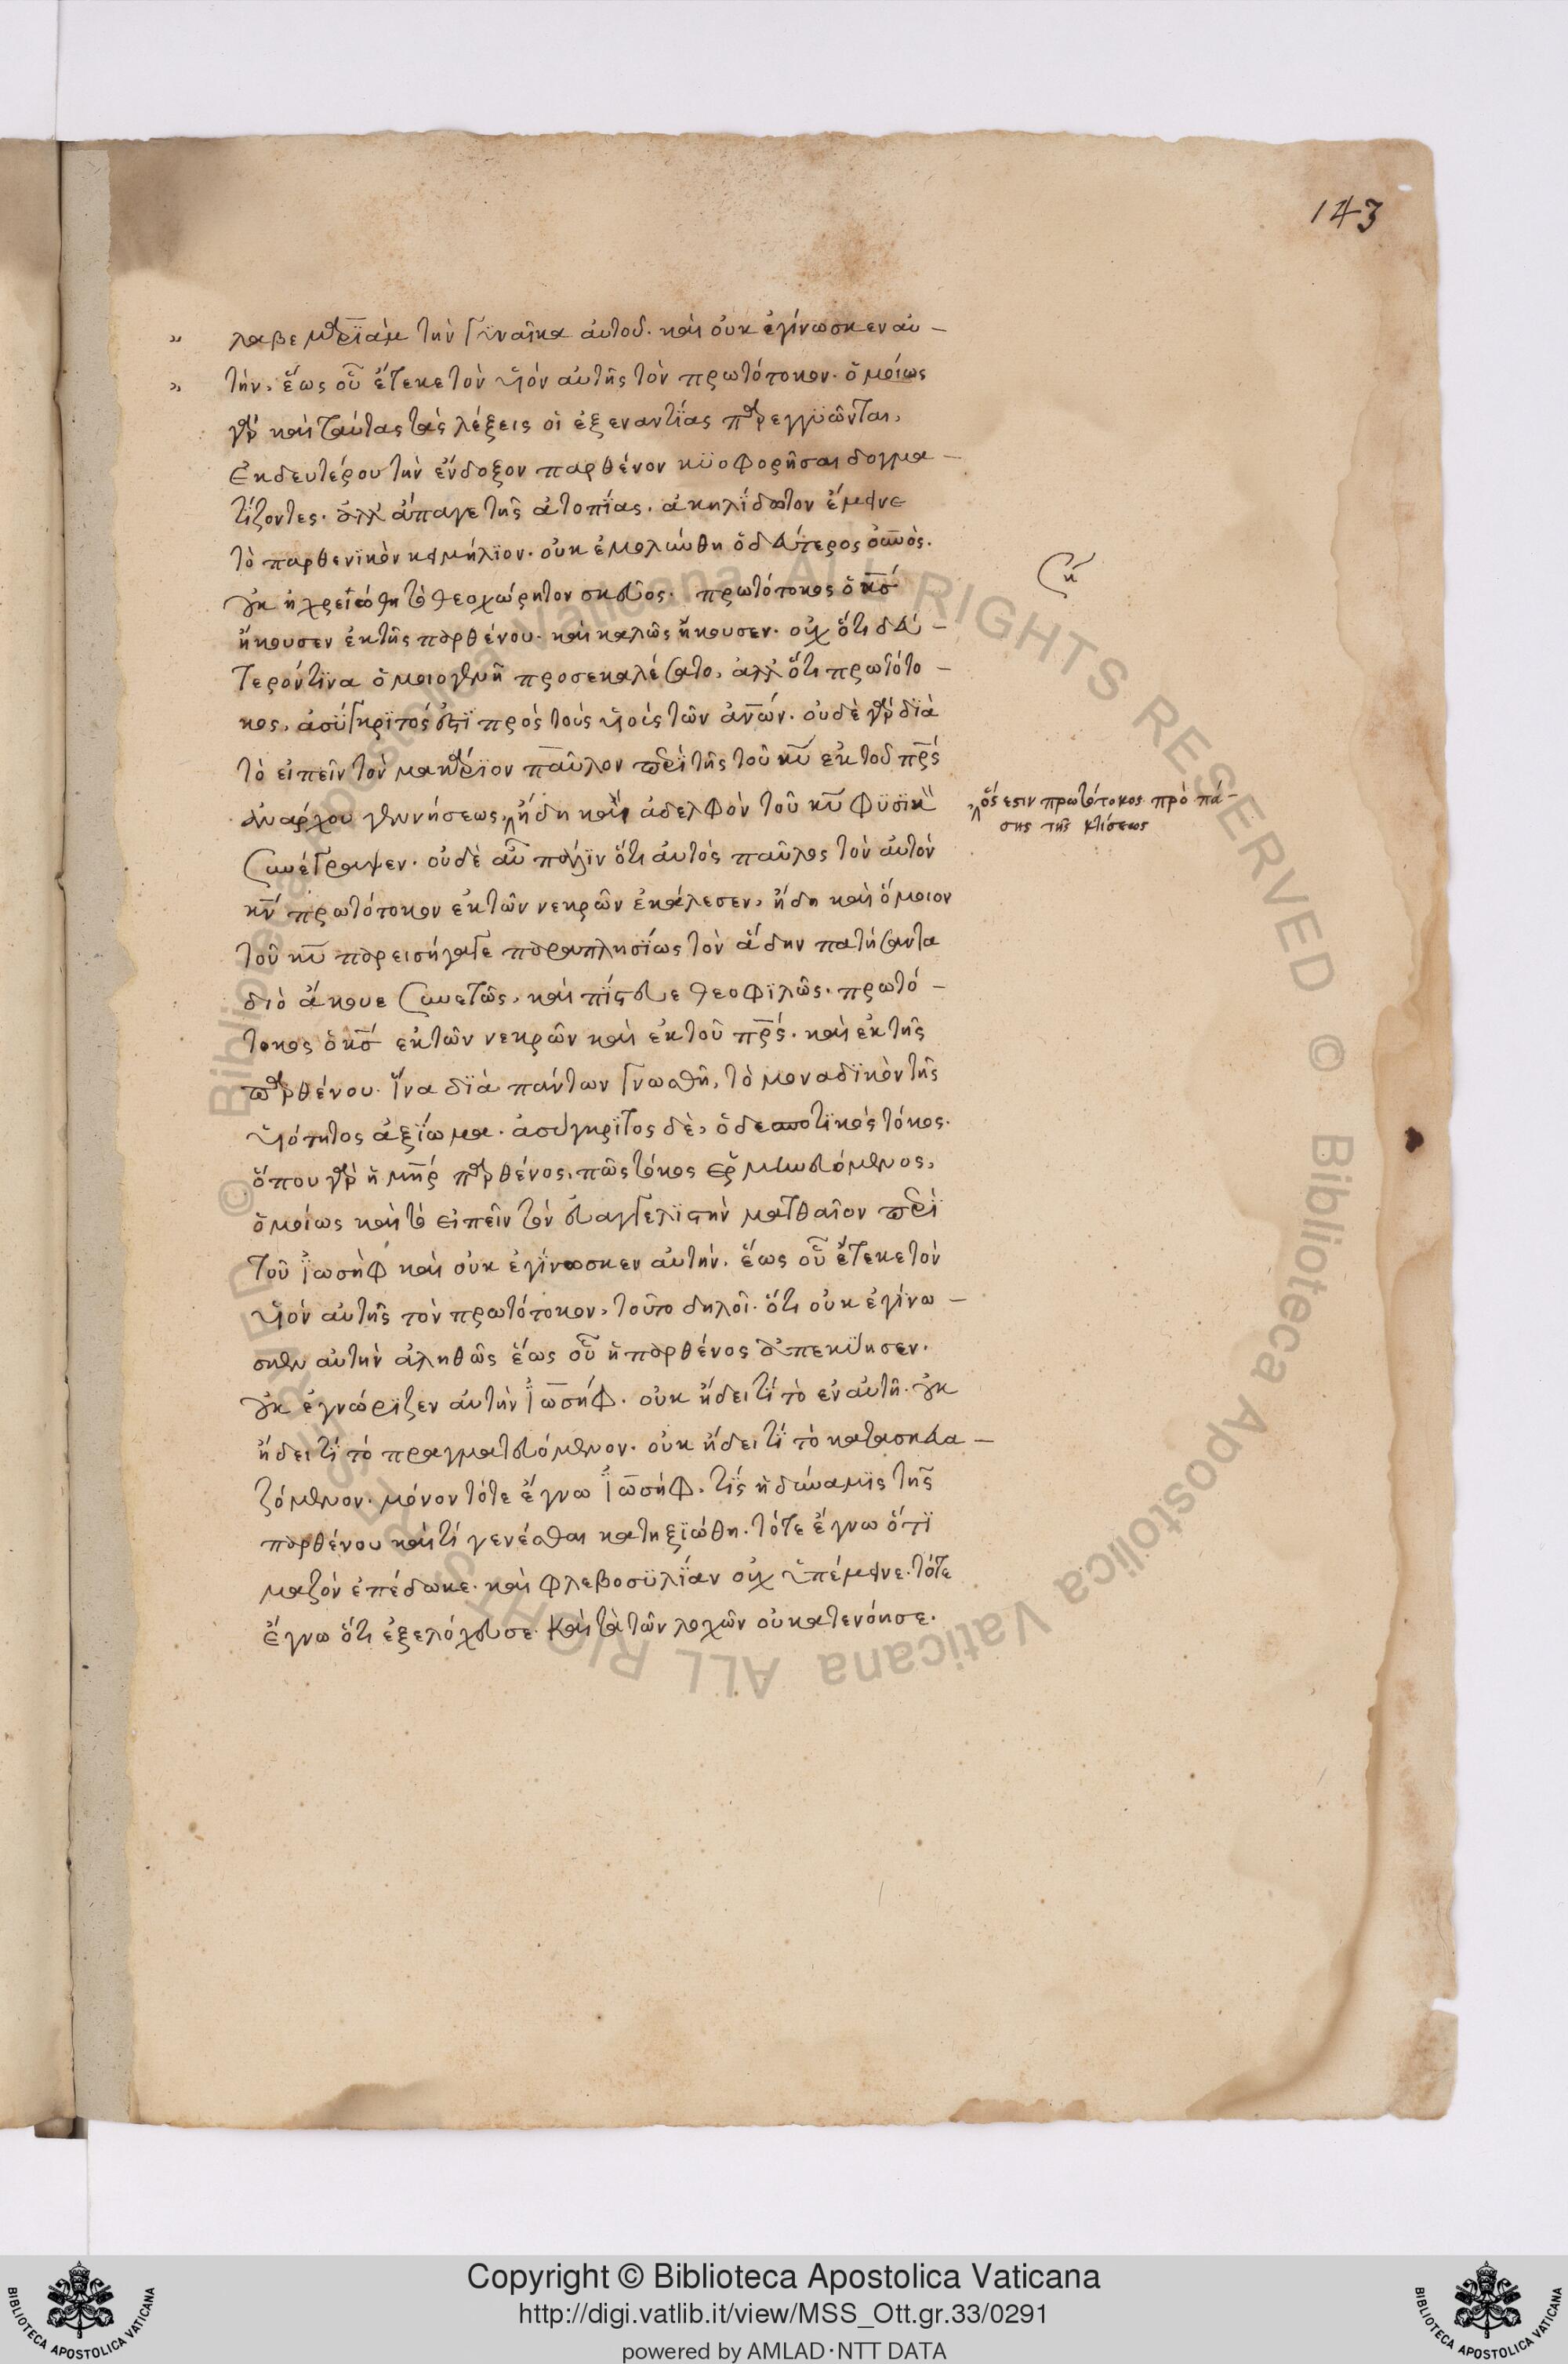 143
λαβε μαριὰμ τὴν γυναῖκα αὐτοῦ. καὶ οὐκ ἐγίνωσκεν αὐ-
τὴν, ἕως οὗ ἔτεκε τὸν υἱὸν αὐτῆς τὸν πρωτότοκον. ὁμοίως
γὰρ καὶ ταύτας τὰς λέξεις οἱ ἐξεναντίας παρεγγυῶνται,
ἐκδευτέρου τὴν ἔνδοξον παρθένον κυοφορῆσαι δογμα-
τίζοντες. ἀλλ' ἄπαγε τῆς ἀτοπίας. ἀκηλίδωτον ἔμεινε
τὸ παρθενικὸν κειμήλιον. οὐκ ἐμολύνθη ὁ δεύτερος οὐνὸς.
οὐκ ἠχρειώθη τὸ θεοχώρητον σκεῦος. πρωτότοκος ὁ κς
ἤκουσεν ἐκ τῆς παρθένου. καὶ καλῶς ἤκουσεν. οὐχ ὅτι δεύ-
τερόν τινα ὁμοιογενῆ προσεκαλέσατο, ἀλλ' ὅτι πρωτότο-
κος, ἀσύγκριτός ἐστι πρὸς τοὺς υἱοὺς τῶν ανων. οὐδὲ γὰρ διὰ
τὸ εἰπεῖν τὸν μακάριον παῦλον περὶ τῆς τοῦ κυ ἐκ τοῦ πρς
ἀνάρχου γεννήσεως, ἤδη καὶ ἀδελφὸν τοῦ κυ φυσικῶς
ὅς εστιν πρωτότοκος πρὸ πά-
σης τῆς κτίσεως
συνέγραψεν. οὐδὲ αὖ πάλιν ὅτι αὐτὸς παῦλος τὸν αὐτὸν
κν πρωτότοκον ἐκ τῶν νεκρῶν ἐκάλεσεν, ἤδη καὶ ὅμοιον
τοῦ κυ παρεισήγαγε παραπλησίως τὸν ἅδην πατήσαντα
διὸ ἄκουε συνετῶς, καὶ πίστευε θεοφιλῶς. πρωτό-
τοκος ὁ κς ἐκ τῶν νεκρῶν καὶ ἐκ τοῦ πρς. καὶ ἐκ τῆς
παρθένου. ἵνα διὰ πάντων γνωσθῆ, τὸ μοναδικὸν τῆς
υἱότητος ἀξίωμα. ἀσύγκριτος δὲ, ὁ δεσποτικὸς τόκος.
ὅπου γὰρ ἡ μηρ παρθένος, πῶς τόκος ἑρμηνευόμενος,
ὁμοίως καὶ τὸ εἰπεῖν τὸν εὐαγγελιστὴν ματθαῖον περὶ
τοῦ ἰωσὴφ καὶ οὐκ ἐγίνωσκεν αὐτὴν. ἕως οὗ ἔτεκε τὸν
υἱὸν αὐτῆς τὸν πρωτότοκον, τοῦτο δηλοῖ. ὅτι οὐκ ἐγίνω-
σκεν αὐτὴν ἀληθῶς ἕως οὗ ἡ παρθένος ἀπεκύησεν.
οὐκ ἐγνώριζεν αὐτὴν ἰωσήφ. οὐκ ἤδει τί τὸ ἐν αὐτῆ. οὐκ
ἤδει τί τὸ πραγματευόμενον. οὐκ ἤδει τί τὸ κατασκευα-
ζόμενον. μόνον τότε ἔγνω ἰωσήφ, τίς ἡ δύναμις τῆς
παρθένου καὶ τί γενέσθαι κατηξιώθη. τότε ἔγνω ὅτι
μαζὸν ἐπέδωκε. καὶ φλεβοσυλίαν οὐχ ὑπέμεινε. τότε
ἔγνω ὅτι ἐξελόχευσε. καὶ τὰ τῶν λοχῶν οὐ κατενόησε.
Copyright © Biblioteca Apostolica Vaticana
http://digi.vatlib.it/view/MSS_Ott.gr.33/0291
powered by AMLAD·NTT DATA